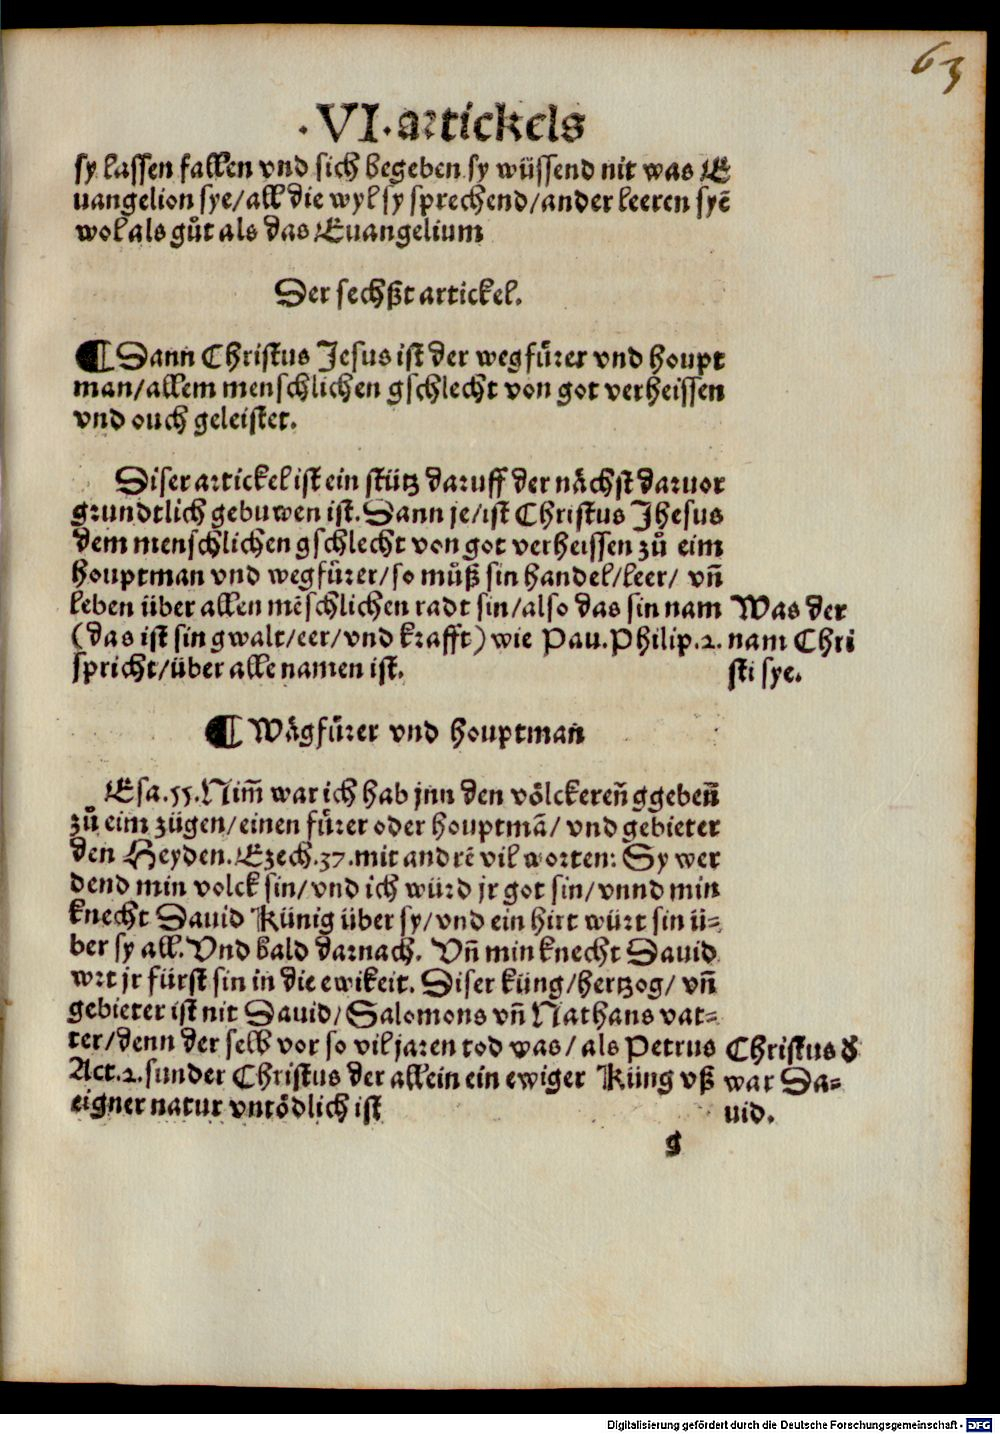 63
·VI·artickels
sy lassen fallen vnd sich begeben sy wüssend nit was E
uangelion sye/all die wyl sy sprechend/ander leeren syē
wol als gůt als das Euangelium
Der sechßt artickel.
¶ Dann Christus Jesus ist der wegfu̍rer vnd houpt
man/allem menschlichen gschlecht von got verheissen
vnd ouch geleistet.
Diser artickel ist ein stütz daruff der nåchst daruor
grundtlich gebuwen ist. Dann je/ist Christus Jhesus
dem menschlichen gschlecht von got verheissen zů eim
houptman vnd wegfu̍rer/so můß sin handel/leer/ vn̄
leben über allen mēschlichen radt sin/also das sin nam
(das ist sin gwalt/eer/vnd krafft) wie Pau. Philip.2.
spricht/über alle namen ist.
Was der
nam Chri
sti sye.
¶ Wågfu̍rer vnd houptman
Esa.55. Nim̄ war ich hab jnn den völckeren̄ ggeben̄
zů eim zügen/einen fu̍rer oder houptmā/ vnd gebieter
den Heyden. Ezech.37. mit andrē vil worten: Sy wer
dend min volck sin/vnd ich würd jr got sin/vnnd min
knecht Dauid Künig über sy/vnd ein hirt würt sin ü⸗
ber sy all. Vnd bald darnach. Vn̄ min knecht Dauid
wrt jr fürst sin in die ewikeit. Diser küng/hertzog/ vn̄
gebieter ist nit Dauid/Salomons vn̄ Nathans vat⸗
ter/denn der selb vor so vil jaren tod was/ als Petrus
Act.2. sunder Christus der allein ein ewiger Küng vß
eigner natur vntödlich ist
Christus d̕
war Da⸗
uid.
g
Digitalisierung gefördert durch die Deutsche Forschungsgemeinschaft - DFG